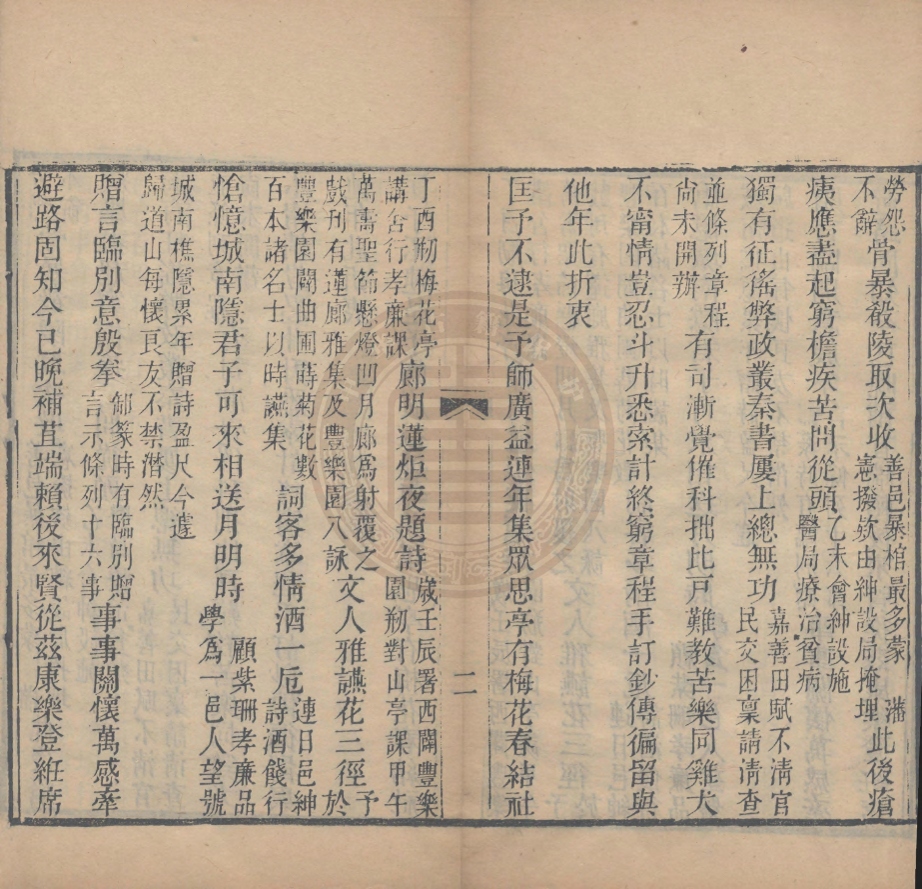 勞怨
不辭
骨暴殽陵取次收
善邑暴棺最多蒙　藩
憲撥欵由紳設局掩埋
此後瘡
痍應盡起窮檐疾苦問從頭
乙未會紳設施
醫局療治貧病
獨有征徭弊政叢秦書屢上總無功
嘉善田賦不淸官
民交困稟請淸查
並條列章程
尙未開辦
有司漸覺催科拙比戸難教苦樂同雞犬
不甯情豈忍斗升悉索計終窮章程手訂鈔傳徧留與
他年此折衷
匡予不逮是予師廣益連年集眾思亭有梅花春結社
二
丁酉剏梅花亭
講舍行孝廉課
廊明蓮炬夜題詩
歲壬辰署西闢豐樂
園剏對山亭課甲午
萬壽聖節懸燈凹月廊爲射覆之
戲刊有蓮廊雅集及豐樂園八詠
文人雅讌花三徑
予
於
豐樂園闢曲圃蒔菊花數
百本諸名士以時讌集
詞客多情酒一卮
連日邑紳
詩酒餞行
愴憶城南隱君子可來相送月明時
顧紫珊孝廉品
學爲一邑人望號
城南樵隱累年贈詩盈尺今遽
歸道山每懷良友不禁潸然
贈言臨別意殷拳
卸篆時有臨別贈
言示條列十六事
事事關懷萬感牽
避路固知今已晚補苴端賴後來賢從茲康樂登絍席